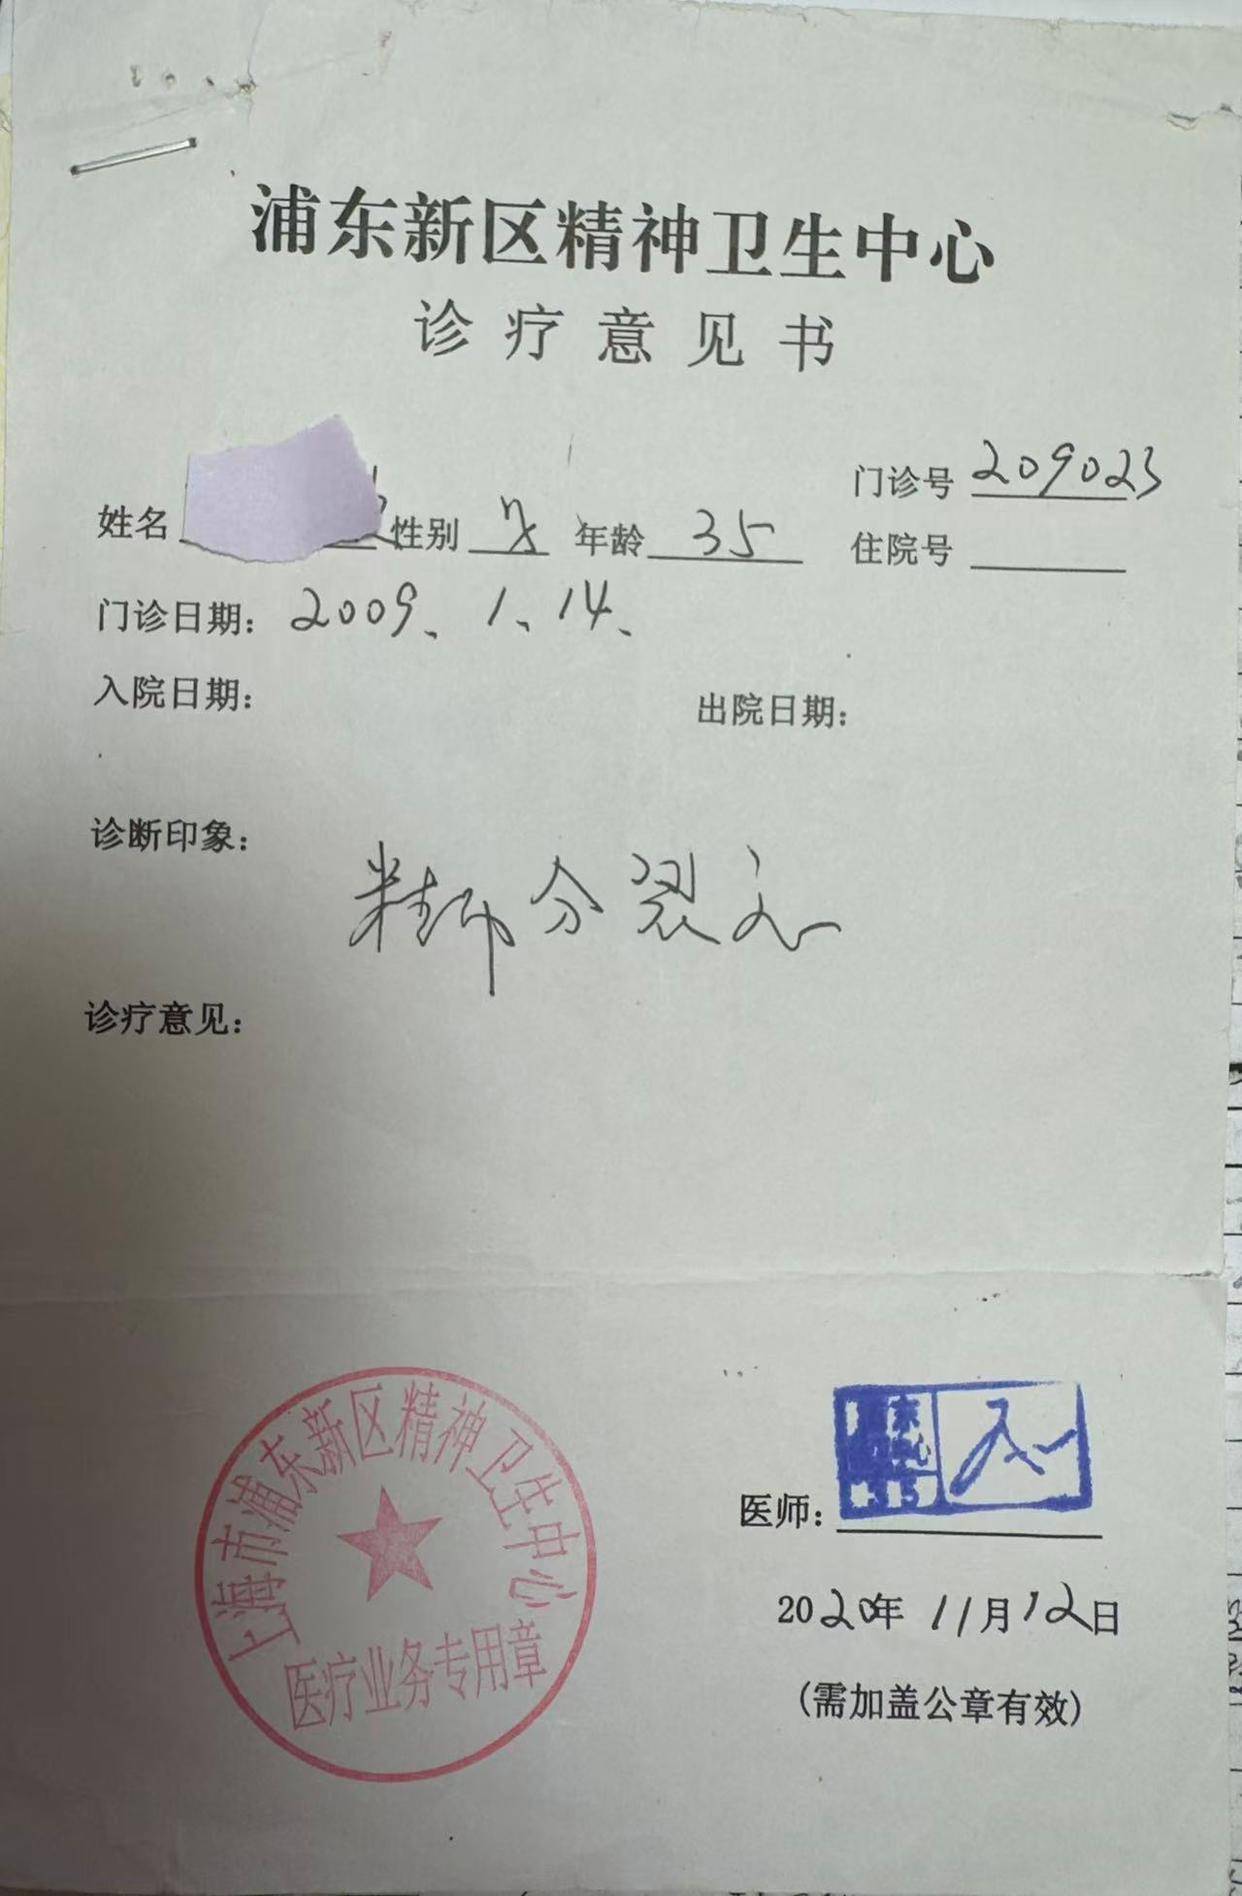 浦东新区精神卫生中心
诊疗意见书
门诊号 209023
姓名 性别 女 年龄 35 住院号
门诊日期: 2009、1、14、
入院日期: 出院日期:
诊断印象:
精神分裂症
诊疗意见:
上海市浦东新区精神卫生中心
医疗业务专用章
医师:
2020年11月12日
(需加盖公章有效)